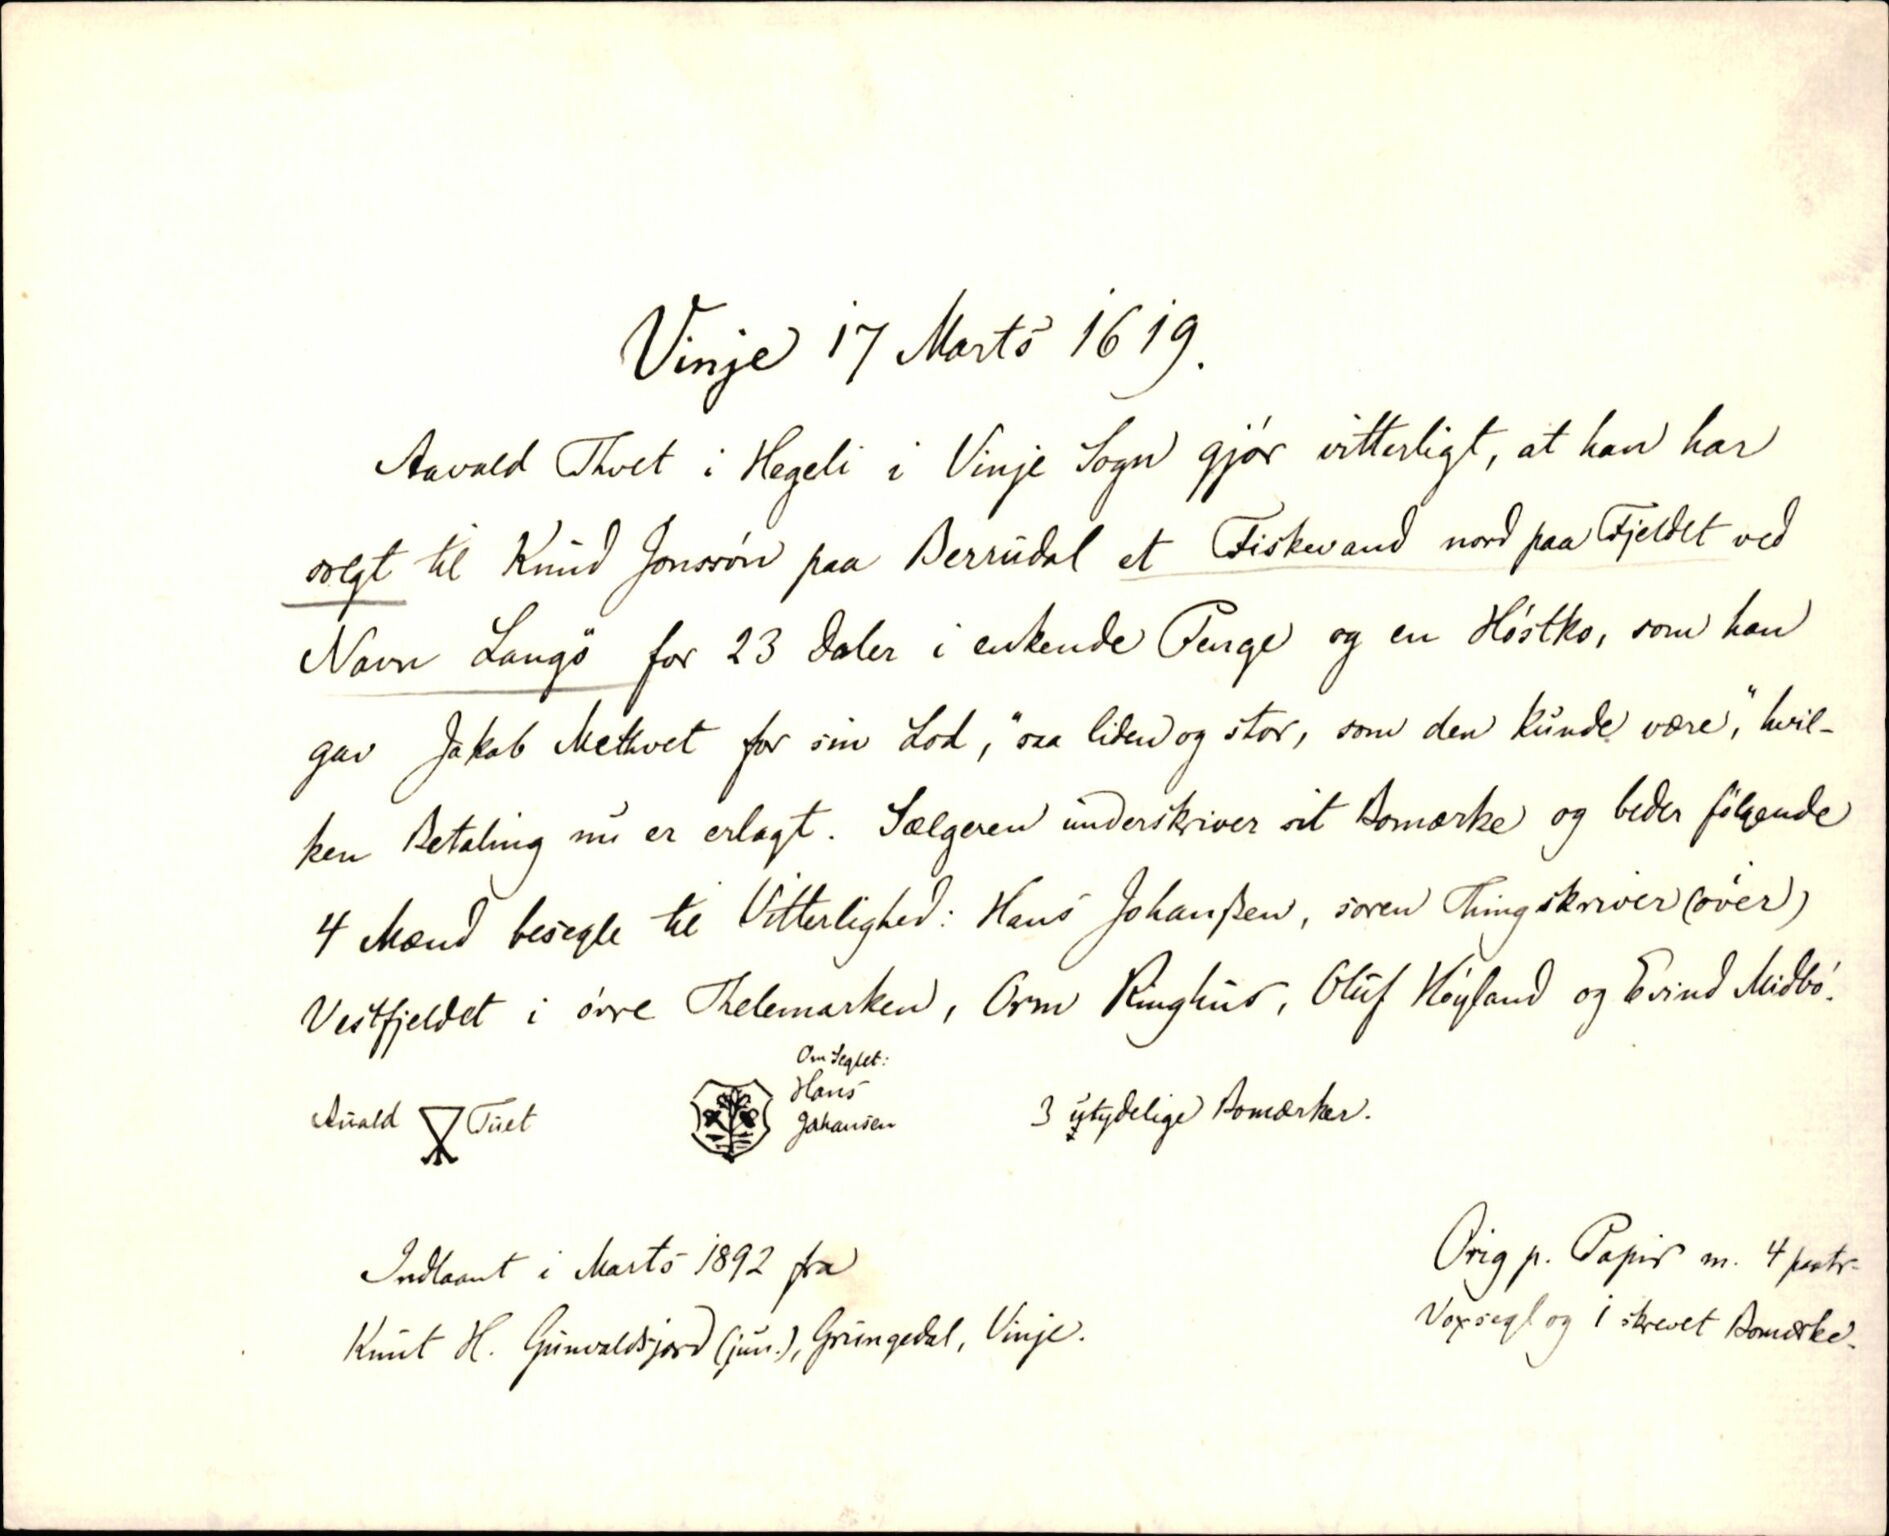 Vinje 17 Marts 1619.
Aavald Thvet i Hegeli i Vinje Sogn gjór vitterligt, at han har
solgt til Knud Jonssón paa Berrudal et Fiskevand nord paa Fjeldet ved
Navn Langö for 23 Daler i enkende Penge og en Hóstko, som han
gav Jakob Methvet for sin Lod, "saa liden og stor, som den kunde være," hvil-
ken Betaling nu er erlagt. Sælgeren underskriver sit Bomærke og beder fölgende
4 Mænd besegle til Vitterlighed: Hans Johanßen, soren Thingskriver (óver)
Vestfjeldet i óvre Thelemarken, Orm Ringhus, Oluf Hóyland og Evind Midbó.
Auald Tuet
Om Seglet:
Hans
Johansen
3 utydelige Bomærker.
Indlaant i Marts 1892 fra
Knut H. Gunvaldsjord (jun.), Grungedal, Vinje.
Orig p. Papir m. 4 paatr.
Voxsegl og 1 skrevet Bomærke.